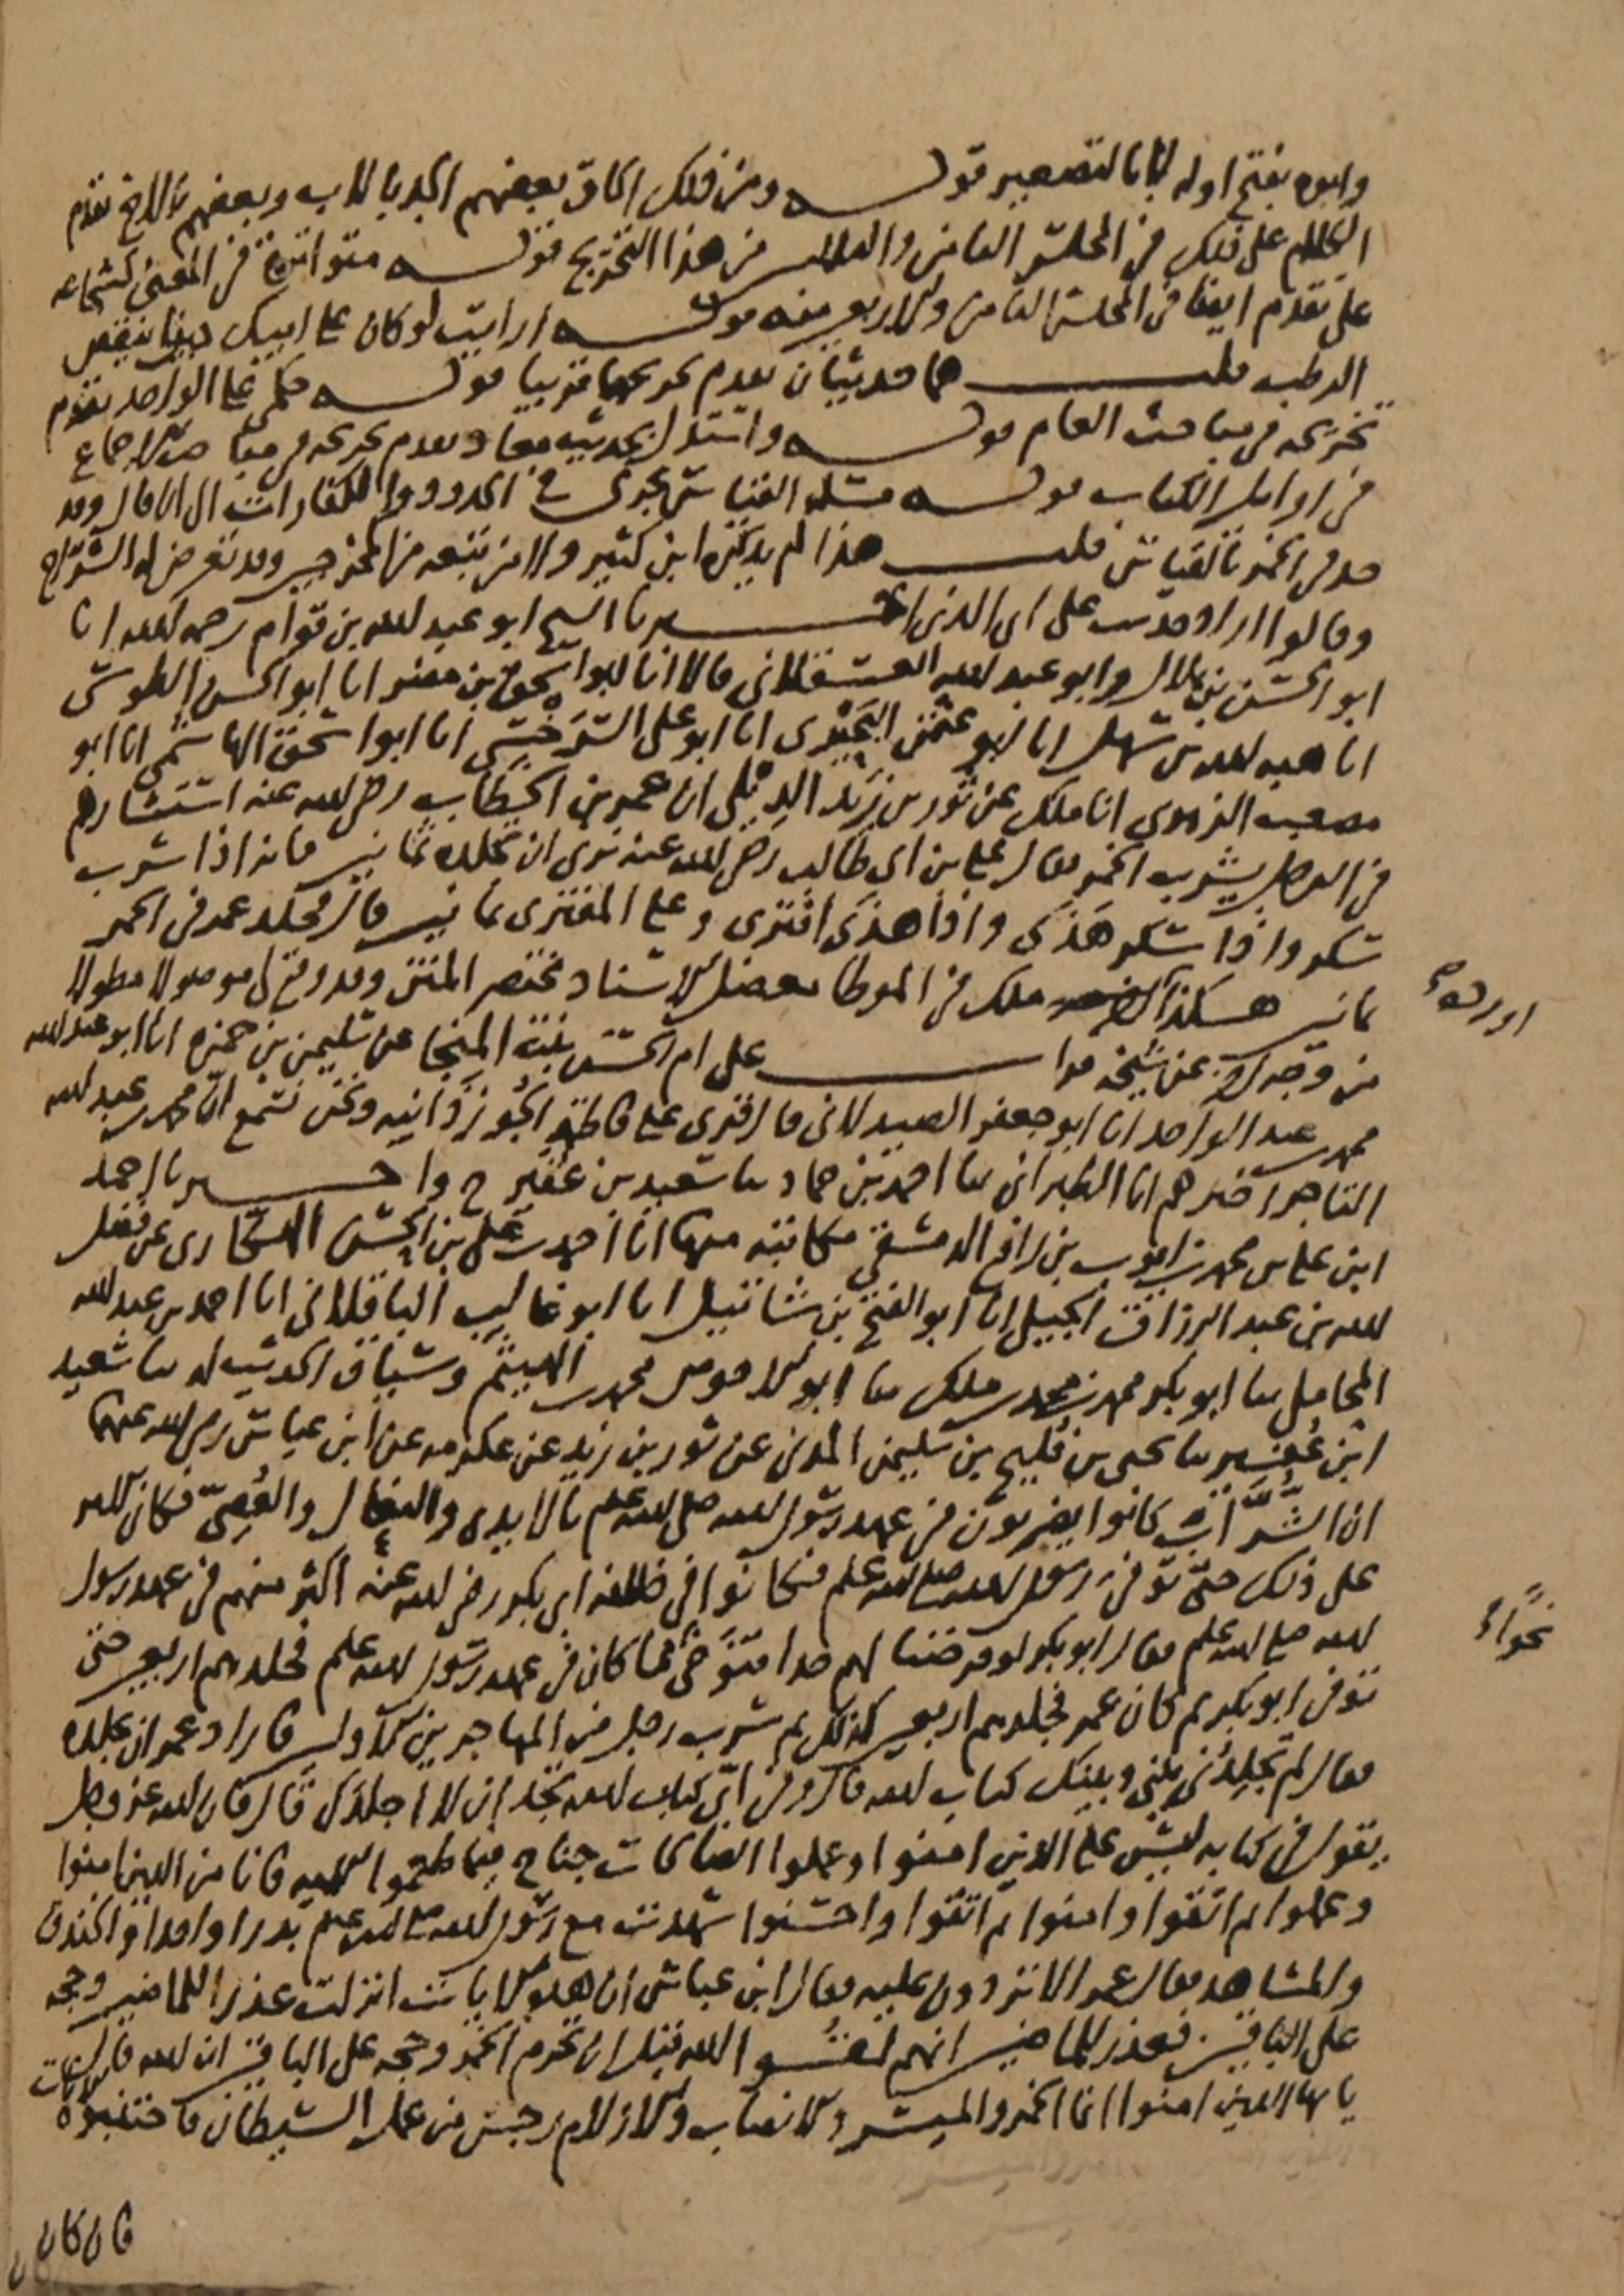 وابوه بفتح اوله لا بالتصغير قوله ومن ذلك الحاق بعضهم الجد بالاب وبعضهم بالاخ تقدم
الكلام على ذلك في المجلس الثامن والثلاثين من هذا التخريج قوله متواترة في المعنى كشجاعة
علي تقدم ايضا في المجلس الثامن والاربعين منه قوله ارايت لو كان على ابيك دين اينقص
الرطب قلت هما حديثان تقدم تخريجهما قريبا قوله حكمي على الواحد تقدم
تخريجه في مباحث العام قوله واستدل بحديث معاذ تقدم تخريجه في مباحث الاجماع
في اوائل الكتاب قوله مسئلة القياس يجري في الحدود والكفارات الى ان قال وقد
حد في الخمر بالقياس قلت هذا لم يذكره ابن كثير ولا من تبعه من المخرجين وقد تعرض له الشراح
وقالوا اراد حديث علي اي الذي اخبرنا الشيخ ابو عبد الله بن قوام رحمه الله انا
ابو الحسن بن هلال وابو عبد الله العسقلاني قالا انا ابو اسحق بن مضر انا ابو الحسن الطوسي
انا هبة الله بن سهل انا ابو عثمن البحيري انا ابو علي السرخسي انا ابو اسحق الهاشمي انا ابو
مصعب الزهري انا ملك عن ثور بن زيد الديلي ان عمر بن الخطاب رضي الله عنه استشارهم
في الرجل يشرب الخمر فقال علي بن ابي طالب رضي الله عنه نرى ان تجلده ثمانين فانه اذا شرب
سكر واذا سكر هذى واذا هذى افترى وعلى المفتري ثمانين قال فجلد عمر في الخمر
ثمانين هكذا ملك في الموطا معضل الاسناد مختصر المتن وقد وقع لي موصولا مطولا
اورده
من وجه اخر عن شيخه قرات على ام الحسن بنت المنجا عن سليمن بن حمزة انا ابو عبد الله
محمد بن عبد الواحد انا ابو جعفر الصيدلاني قال قري على فاطمة الجوزدانية ونحن نسمع ان محمد بن عبد الله
التاجر اخبرهم انا الطبراني ثنا احمد بن حماد ثنا سعيد بن عفير ح واخبرنا احمد
ابن علي بن محمد بن ايوب بن رافع الدمشقي مكاتبة منها انا احمد بن علي بن الحسن الهكاري عن فضل
الله بن عبد الرزاق الجيلي انا ابو الفتح بن شاتيل انا ابو غالب الباقلاني انا احمد بن عبد الله
المحاملي ثنا ابو بكر محمد بن محمد بن ملك ثنا ابو الاحوص محمد بن الهيثم وسياق الحديث له ثنا سعيد
ابن عفير ثنا يحيى بن فليح بن سليمن المدني عن ثور بن زيد عن عكرمة عن ابن عباس رضي الله عنهما
ان الشراب كانوا يضربون في عهد رسول الله صلى الله عليه وسلم بالايدي والنعال والعصي فكان الامر
على ذلك حتى توفي رسول الله صلى الله عليه وسلم فكانوا في خلافة ابي بكر رضي الله عنه اكثر منهم في عهد رسول
الله صلى الله عليه وسلم فقال ابو بكر لو فرضنا لهم حدا فتوخى مما كان في عهد رسول الله صلى الله عليه وسلم فجلدهم اربعين حتى
نحوا
توفي ابو بكر ثم كان عمر فجلدهم اربعين كذلك ثم شرب رجل من المهاجرين الاولين فاراد عمر ان يجلده
فقال لم تجلدني بيني وبينك كتاب الله قال وفي اي كتاب الله تجد ان لا اجلدك قال فان الله عز وجل
يقول في كتابه ليس على الذين امنوا وعملوا الصالحات جناح فيما طعموا الاية فانا من الذين امنوا
وعملوا ثم اتقوا وامنوا ثم اتقوا واحسنوا شهدت مع رسول الله صلى الله عليه وسلم بدرا واحدا والخندق
والمشاهد فقال عمر الا تردون عليه فقال ابن عباس ان هؤلاء الايات انزلت عذرا للماضين وحجة
على الباقين فعذر للماضين انهم لقوا الله قبل ان تحرم الخمر وحجة على الباقين ان الله قال
يا ايها الذين امنوا انما الخمر والميسر والانصاب والازلام رجس من عمل الشيطان فاجتنبوه الايات
فان كان